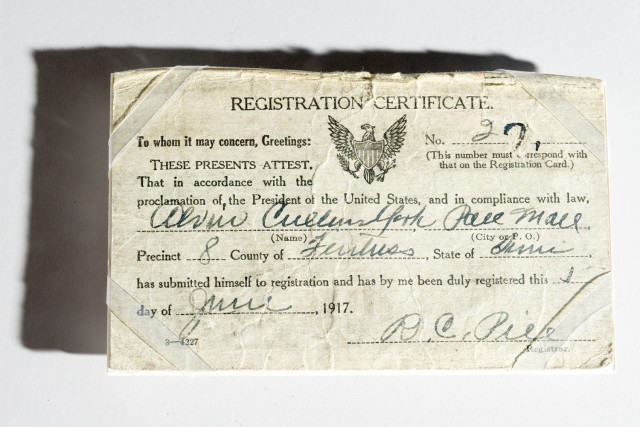 REGISTRATION CERTIFICATE.
To whom it may concern, Greetings:
No. 27,
(This number must correspond with
that on the Registration Card.)
THESE PRESENTS ATTEST,
That in accordance with the
proclamation of the President of the United States, and in compliance with law,
Alvin Cullum York Pall Mall,
(Name) (City or P. O.)
Precinct 8 County of Fentress, State of Tenn,
has submitted himself to registration and has by me been duly registered this 5
day of June, 1917.
B. C. Pile
3—4227 Registrar.